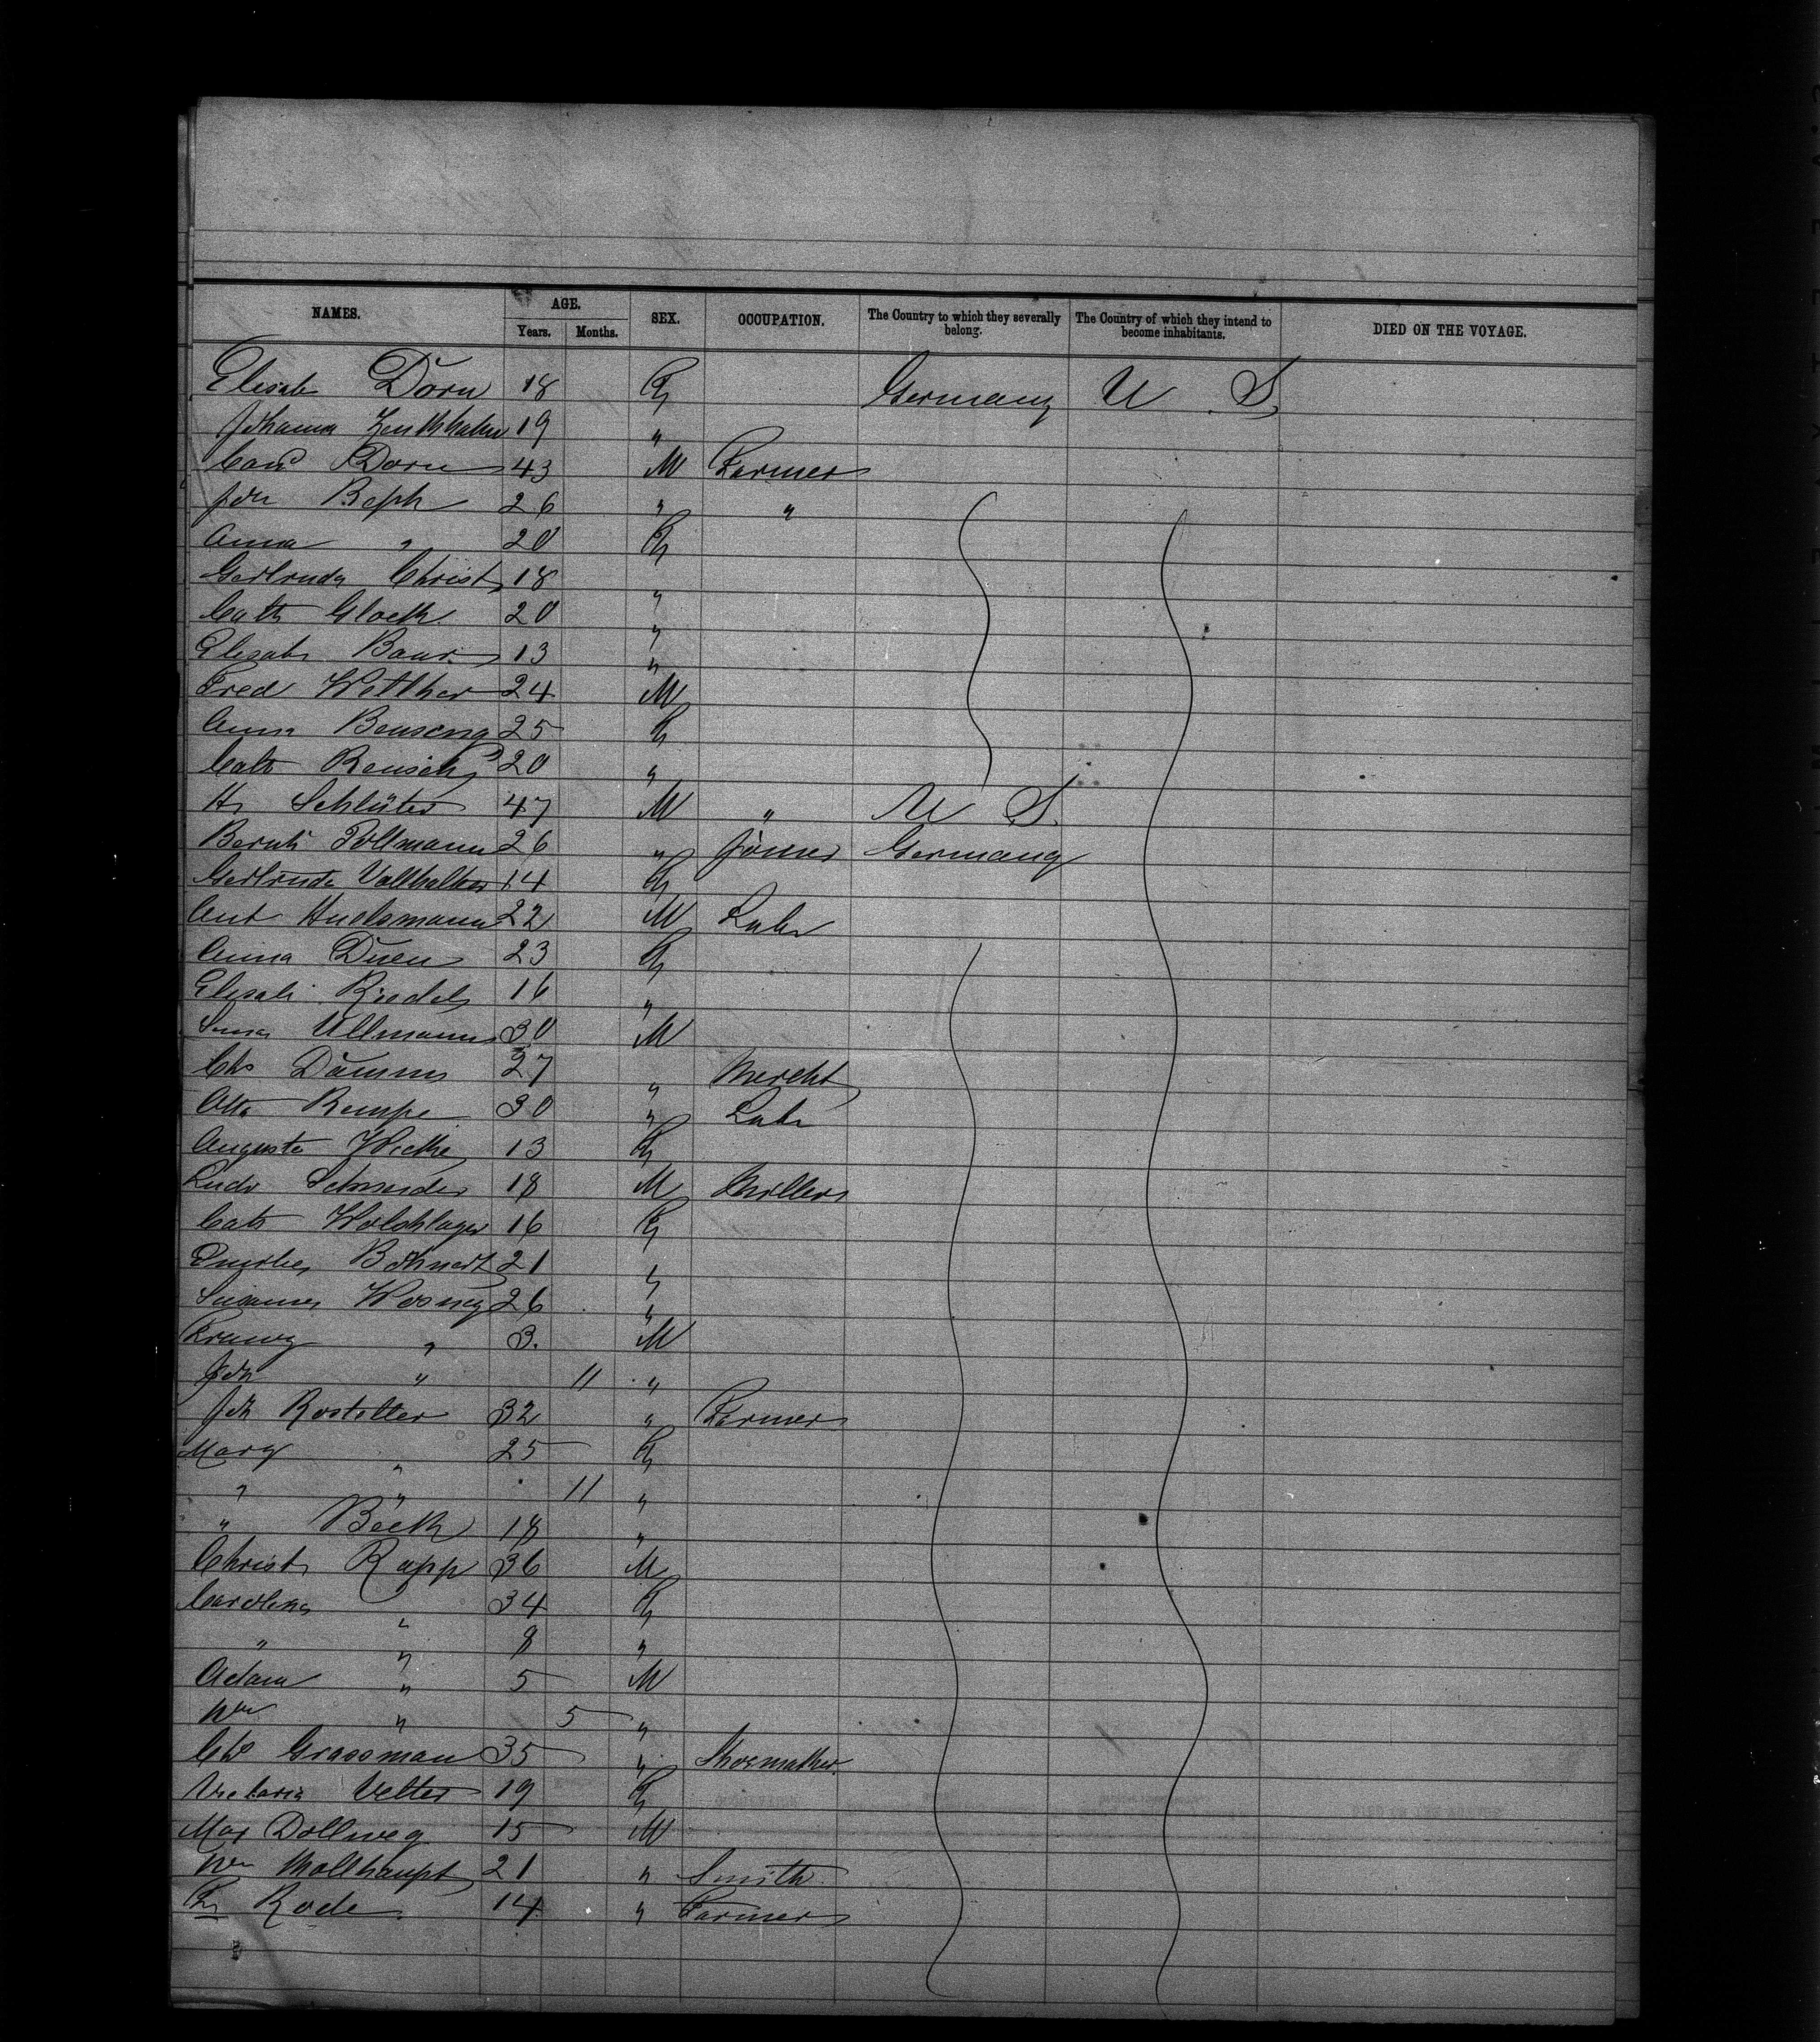 NAMES. AGE. SEX. OCCUPATION. The Country to which they severally belong. The Country of which they intend to become inhabitants. DIED ON THE VOYAGE.
Years. Months.
Elisab Dorn 18 F Germany U S
Johanna 19 "
Conr Dorn 43 M Farmer
Joh Beph 26 " "
Anna " 20 F
Gertrude Christ 18 "
Cath Gloeck 20 "
Elisab Baur 13 "
Fred Welther 24 M
Anna Benseng 25 F
Cath Reusch 20 "
Hr Schlüter 47 M " U S.
Bernh Pollmann 26 " Joiner Germany
Gertrude 14 F
Ant Huelsmann 22 M Labr
Anna Duen 23 F
Elisab Riedel 16 "
Ullmann 30 M
Chs Damm 27 " Mercht
Otto Rempe 30 " Labr
Auguste Wicke 13 F
Ludw Schneider 18 M Miller
Cath Wolschlager 16 F
Emilie Bohnert 21 "
Susanna Wosney 26 "
Franz " 3. M
Joh " 11 "
Joh Rostetter 32 " Farmer
Mary " 25 F
" " 11 "
" Beck 18 "
Christ Rapp 36 M
Caroline " 34 F
" " 8 "
Adam " 5 M
Wm " 5 "
Chs Grassman 35 " Shoemaker.
Victoria Velter 19 F
Max Dollweg 15 M
Wm Mollhaupt 21 " Smith
Fr Rode 14 " Farmer